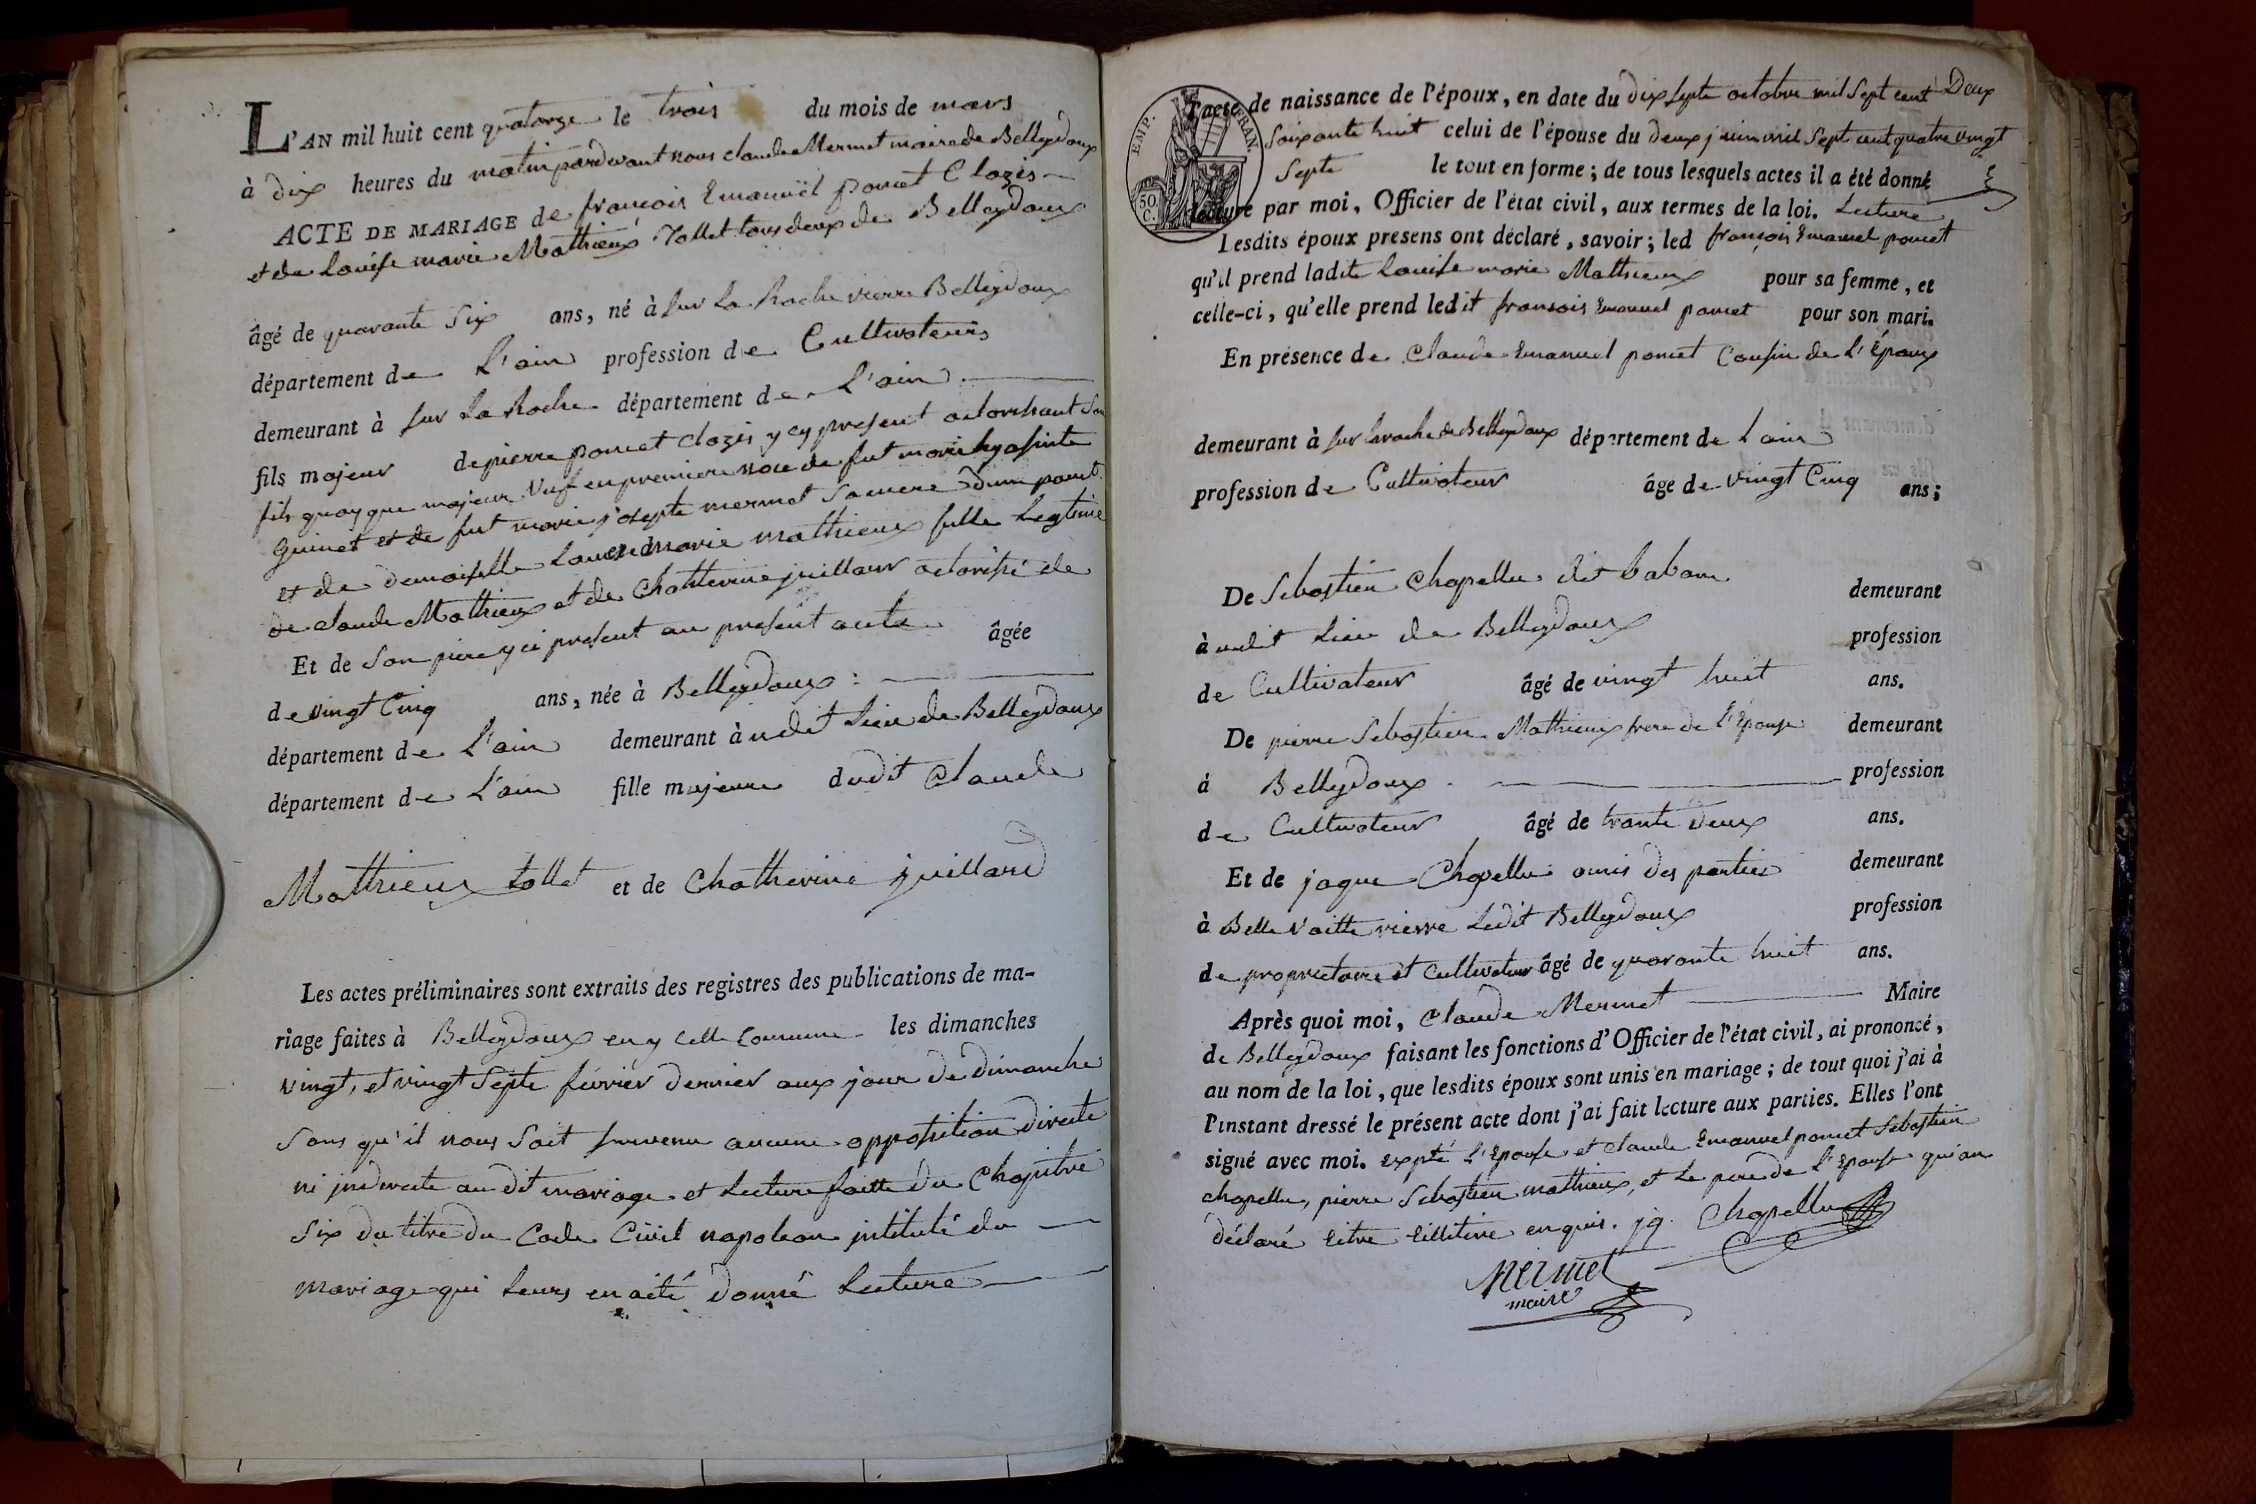 L'AN mil huit cent quatorze le trois du mois de mars
à dix heures du matin pardevant nous claude Mermet maire de Belleydoux
ACTE DE MARIAGE de françois Emanuël poncet Clozis
et de Louise marie Mathieux Tollet tous deux de Belleydoux
âgé de quarante six ans, né à sur La Roche rierre Belleydoux
département de L'ain profession de Cultivateurs
demeurant à sur La Roche département de L'ain
fils majeur de pierre poncet Clozis y cy present autorisant son
fils quoy que majeur Veuf en premiere noce de fut marie hyasinte
Guinet et de fut marie josepte mermet sa mere d'une part
et de demoiselle Louise marie mathieux fille Legtime
de claude Mathieux et de Chatterine juillard actorisé de
Et de son pere y ci present au present acte âgée
de vingt Cinq ans, née à Belleydoux :
département de L'ain demeurant à udit Lieu de Belleydoux
département de L'ain fille majeure dudit Claude
Mathieux tollet et de Chatherine juillard
Les actes préliminaires sont extraits des registres des publications de ma-
riage faites à Belleydoux en y celle Commune les dimanches
vingt, et vingt Septe février dernier aux jour de dimanche
Sans qu'il nous Soit survenu aucune opposition directe
ni jndirecte au dit mariage et Lecture faitte du Chapitre
Six du titre du Code Civil napoleon jntitulé du
mariage qui Leurs en a été donné Lecture
EMP. FRAN.
50 C.
l'acte de naissance de l'époux, en date du dix septe octobre mil Sept cent Deux
Soixante huit celui de l'épouse du deux juin mil Sept cent quatre vingt
Septe le tout en forme ; de tous lesquels actes il a été donné
lecture par moi, Officier de l'état civil, aux termes de la loi. Lecture
Lesdits époux présens ont déclaré, savoir ; led françois Emanuel poncet
qu'il prend ladite Louise marie Mathieux pour sa femme, et
celle-ci, qu'elle prend ledit fransois Emanuel poncet pour son mari.
En présence de Claude Emanuel poncet Cousin de L'Epoux
demeurant à sur Laroche de Belleydoux département de Lain
profession de Cultivateur âgé de vingt Cinq ans ;
De Sebastien Chapellu dit babam demeurant
à udit Lieu de Belleydoux profession
de Cultivateur âgé de vingt huit ans.
De pierre Sebastien Mathieux frere de L'Epouse demeurant
à Belleydoux profession
de Cultivateur âgé de trante deux ans.
Et de jaque Chapellu amis des parties demeurant
à Belle Vaitte rierre Ledit Belleydoux profession
de proprietaire et Cultivateur âgé de quarante huit ans.
Après quoi moi, Claude Mermet Maire
de Belleydoux faisant les fonctions d'Officier de l'état civil, ai prononcé,
au nom de la loi, que lesdits époux sont unis en mariage ; de tout quoi j'ai à
l'instant dressé le présent acte dont j'ai fait lecture aux parties. Elles l'ont
signé avec moi. expté L'Epouse et claude Emanuel poncet Sebastien
chapellu, pierre Sebastien mathieux, et Le pere de L'Epouse qui on
déclaré Eitre Eillitire enquis. jq. Chapellu
Mermet
maire